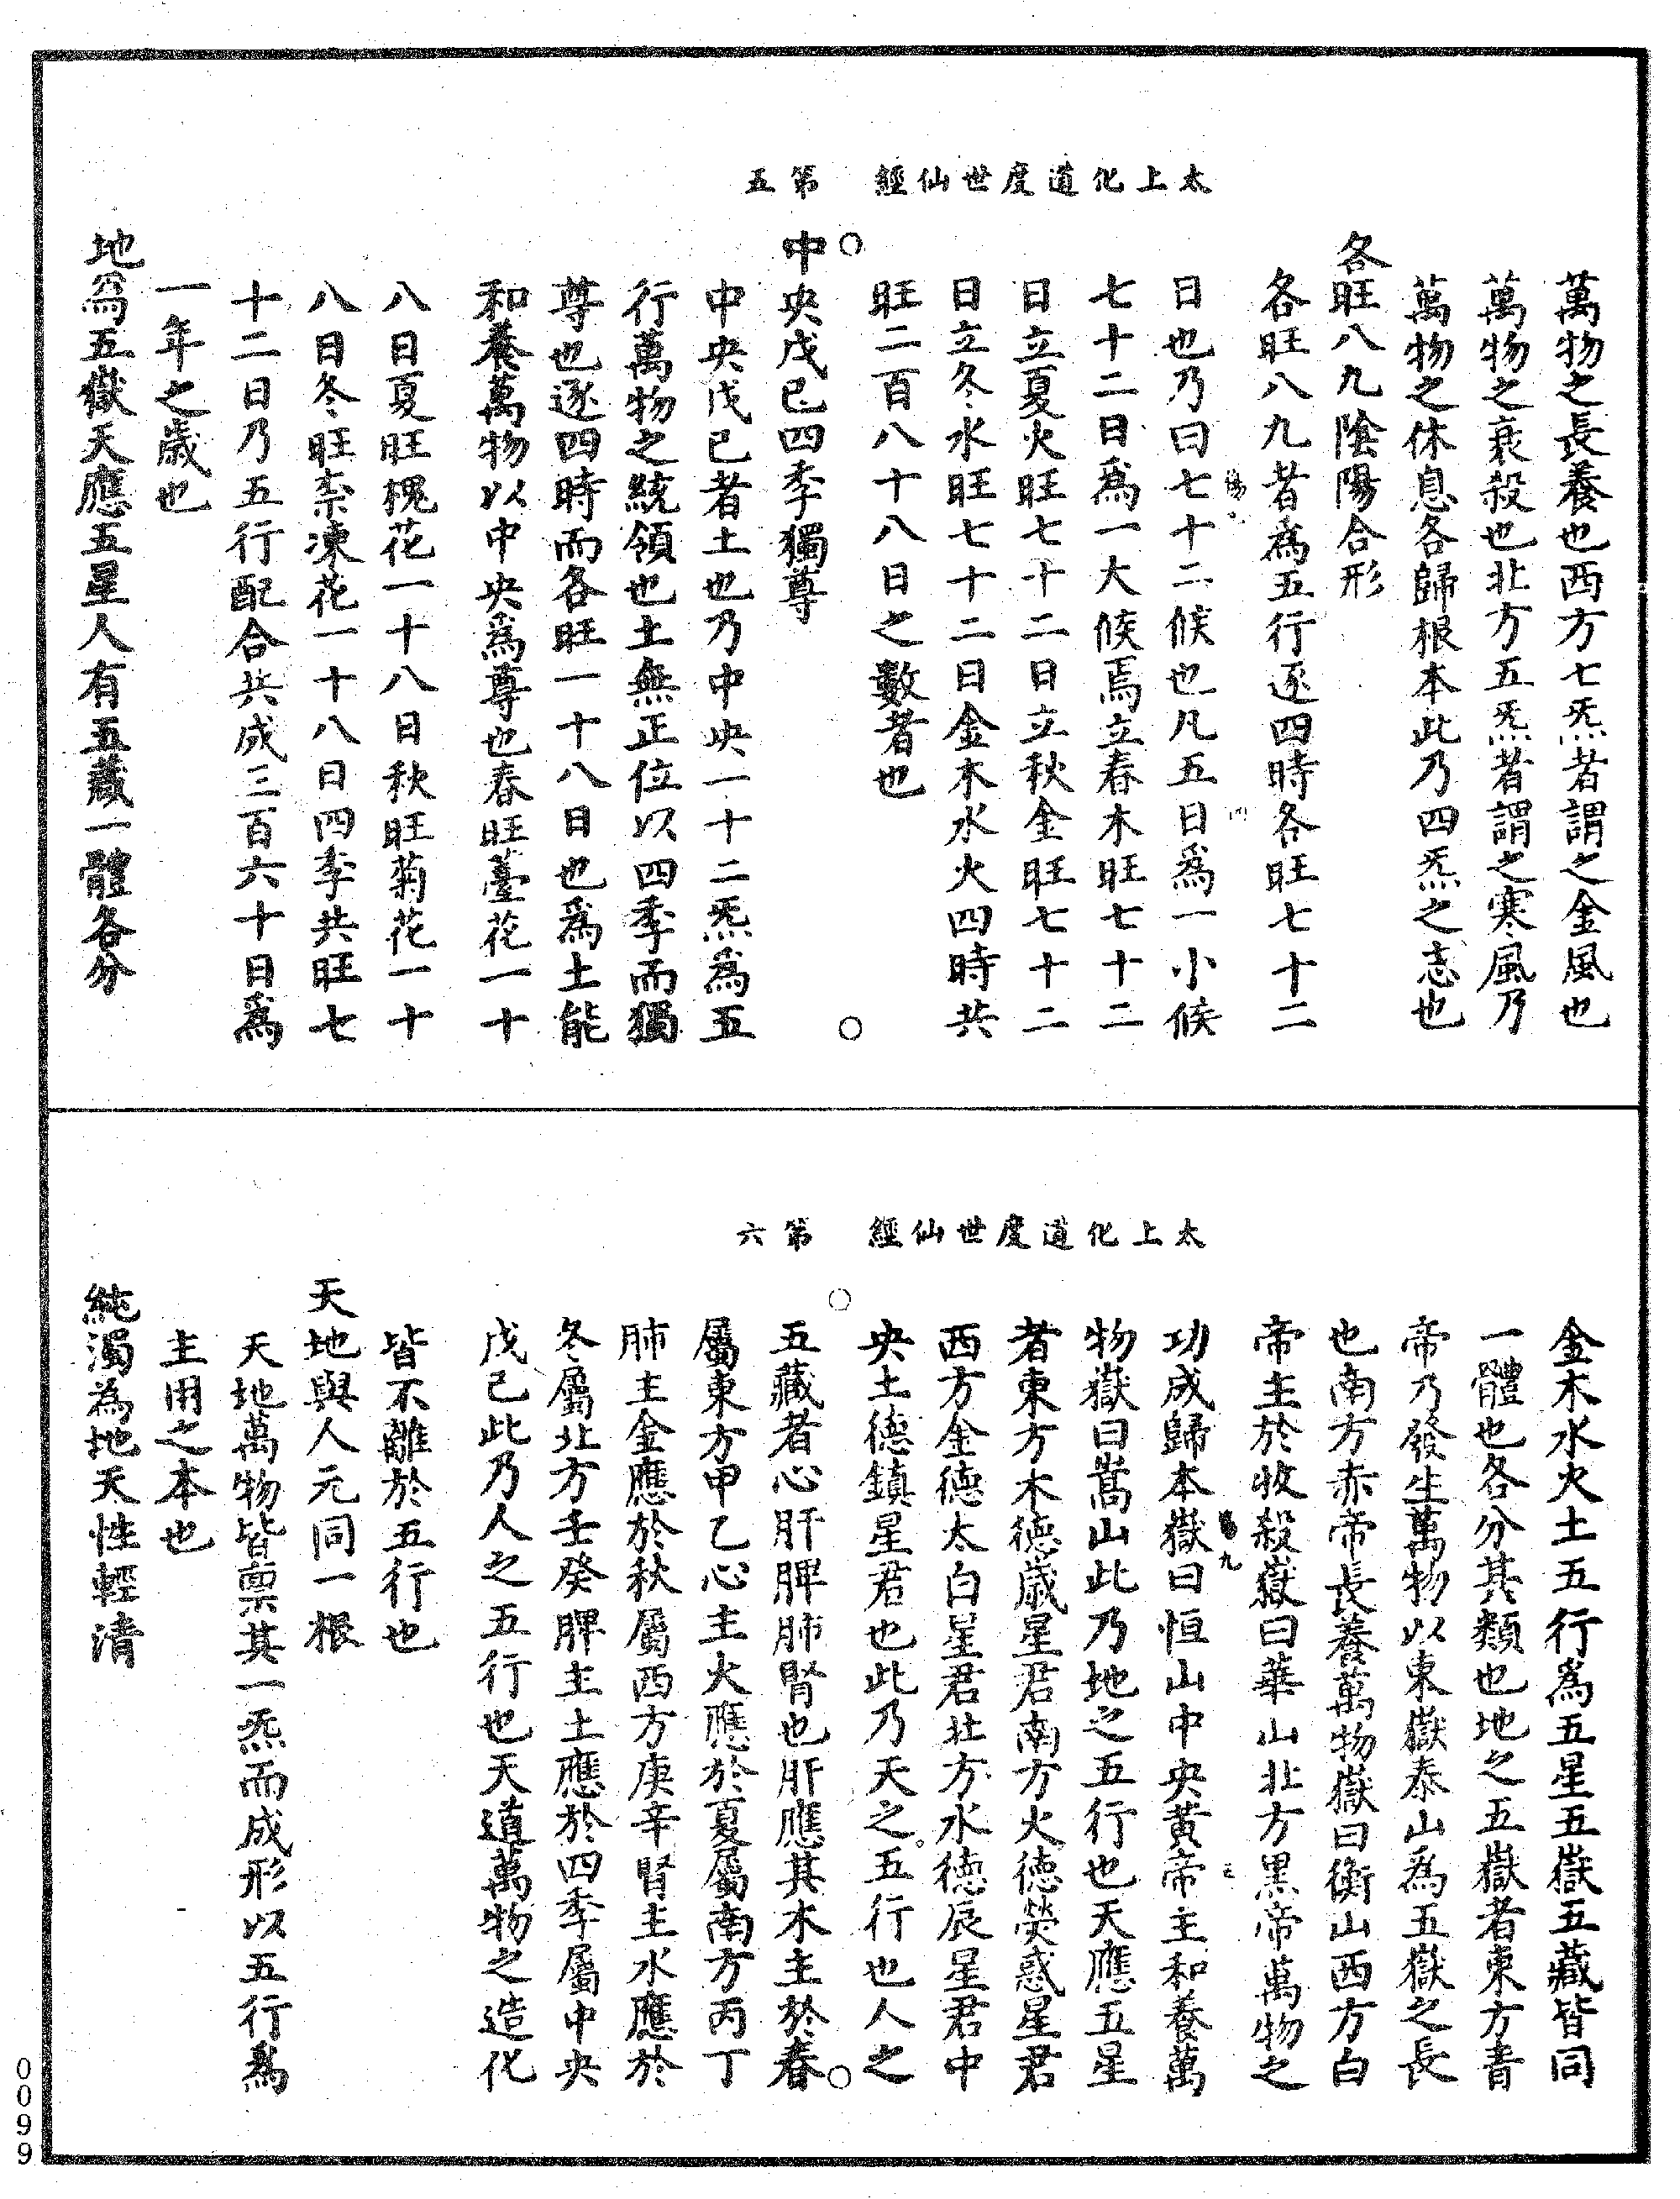 太上化道度世仙經　第五
萬物之長養也西方七炁者謂之金風也
萬物之衰殺也北方五炁者謂之寒風乃
萬物之休息各歸根本此乃四炁之志也
各旺八九陰陽合形
各旺八九者為五行逐四時各旺七十二
日也乃曰七十二候也凡五日為一小候
七十二日為一大候焉立春木旺七十二
日立夏火旺七十二日立秋金旺七十二
日立冬水旺七十二日金木水火四時共
旺二百八十八日之數者也
中央戊已四季獨尊
中央戊已者土也乃中央一十二炁為五
行萬物之統領也土無正位以四季而獨
尊也逐四時而各旺一十八日也為土能
和養萬物以中央為尊也春旺薹花一十
八日夏旺槐花一十八日秋旺菊花一十
八日冬旺柰凍花一十八日四季共旺七
十二日乃五行配合共成三百六十日為
一年之歲也
地為五嶽天應五星人有五藏一體各分
太上化道度世仙經　第六
金木水火土五行為五星五嶽五藏皆同
一體也各分其類也地之五嶽者東方青
帝乃發生萬物以東嶽泰山為五嶽之長
也南方赤帝長養萬物嶽曰衡山西方白
帝主於收殺嶽曰華山北方黑帝萬物之
功成歸本嶽曰恒山中央黃帝主和養萬
物嶽曰嵩山此乃地之五行也天應五星
者東方木德歲星君南方火德熒惑星君
西方金德太白星君北方水德辰星君中
央土德鎮星君也此乃天之五行也人之
五藏者心肝脾肺腎也肝應其木主於春
屬東方甲乙心主火應於夏屬南方丙丁
肺主金應於秋屬西方庚辛腎主水應於
冬屬北方壬癸脾主土應於四季屬中央
戊己此乃人之五行也天道萬物之造化
皆不離於五行也
天地與人元同一根
天地萬物皆稟其一炁而成形以五行為
主用之本也
純濁為地天性輕清
0099